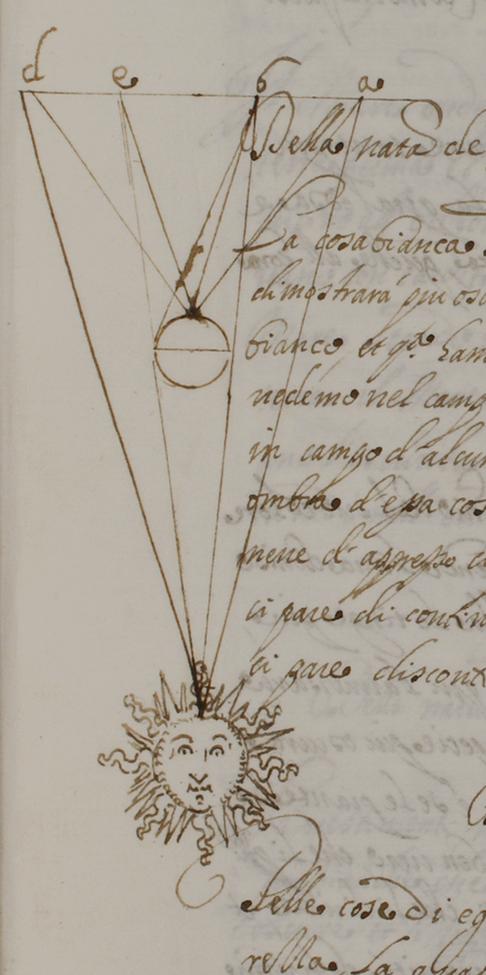 d e b a
Della nata de
La cosa bianca
dimostrarà piu os
bianco, et
uedemo nel camp
in campo d'alcun
ombra d'essa cos
neue d'appresso
ci pare di contin
ci pare discont
delle cose di eg
rella La